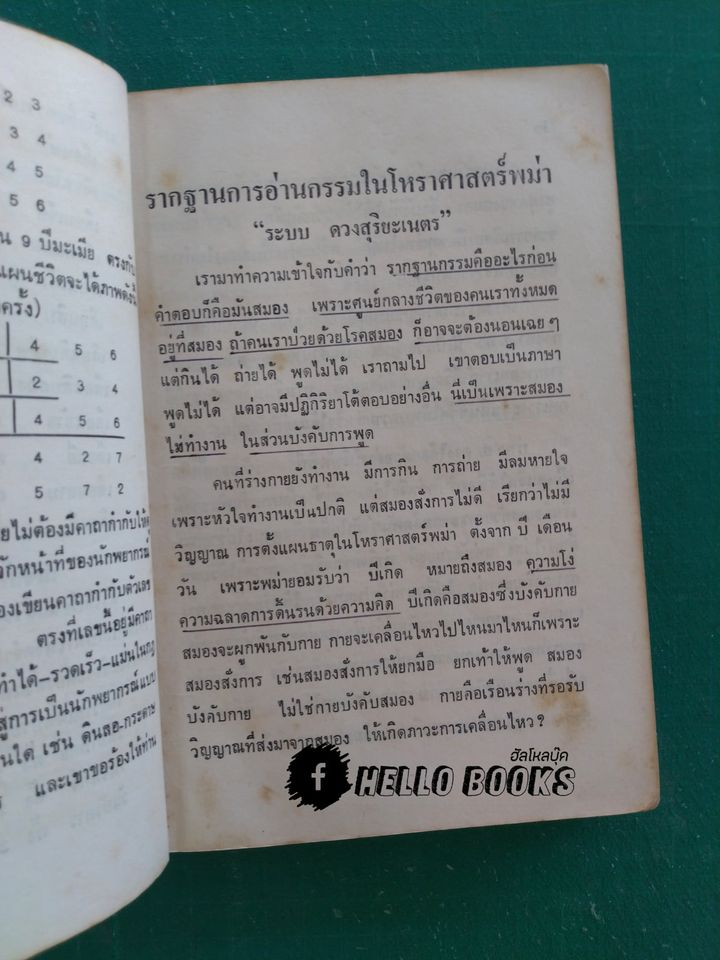 2 3
3 4
4 5
5 6
น 9 ปีมะเมีย ตรงกับ
แผนชีวิตจะได้ภาพดังนี้
ครั้ง)
4 5 6
2 3 4
4 5 6
4 2 7
5 7 2
ยไม่ต้องมีคาถากำกับให้
จักหน้าที่ของนักพยากรณ์
องเขียนคาถากำกับตัวเลข
ตรงที่เลขนี้อยู่มีคาถา
ทำได้-รวดเร็ว-แม่นในกฎ
สู่การเป็นนักพยากรณ์แบบ
นใด เช่น ดินสอ-กระดาษ
และเขาขอร้องให้ท่าน
รากฐานการอ่านกรรมในโหราศาสตร์พม่า
“ระบบ ดวงสุริยะเนตร”
เรามาทำความเข้าใจกับคำว่า รากฐานกรรมคืออะไรก่อน
คำตอบก็คือมันสมอง เพราะศูนย์กลางชีวิตของคนเราทั้งหมด
อยู่ที่สมอง ถ้าคนเราป่วยด้วยโรคสมอง ก็อาจจะต้องนอนเฉย ๆ
แต่กินได้ ถ่ายได้ พูดไม่ได้ เราถามไป เขาตอบเป็นภาษา
พูดไม่ได้ แต่อาจมีปฏิกิริยาโต้ตอบอย่างอื่น นี่เป็นเพราะสมอง
ไม่ทำงาน ในส่วนบังคับการพูด
คนที่ร่างกายยังทำงาน มีการกิน การถ่าย มีลมหายใจ
เพราะหัวใจทำงานเป็นปกติ แต่สมองสั่งการไม่ดี เรียกว่าไม่มี
วิญญาณ การตั้งแผนธาตุในโหราศาสตร์พม่า ตั้งจาก ปี เดือน
วัน เพราะพม่ายอมรับว่า ปีเกิด หมายถึงสมอง ความโง่
ความฉลาดการดิ้นรนด้วยความคิด ปีเกิดคือสมองซึ่งบังคับกาย
สมองจะผูกพันกับกาย กายจะเคลื่อนไหวไปไหนมาไหนก็เพราะ
สมองสั่งการ เช่นสมองสั่งการให้ยกมือ ยกเท้าให้พูด สมอง
บังคับกาย ไม่ใช่กายบังคับสมอง กายคือเรือนร่างที่รอรับ
วิญญาณที่ส่งมาจากสมอง ให้เกิดภาวะการเคลื่อนไหว ?
ฮัลโหลบุ๊ค
f HELLO BOOKS